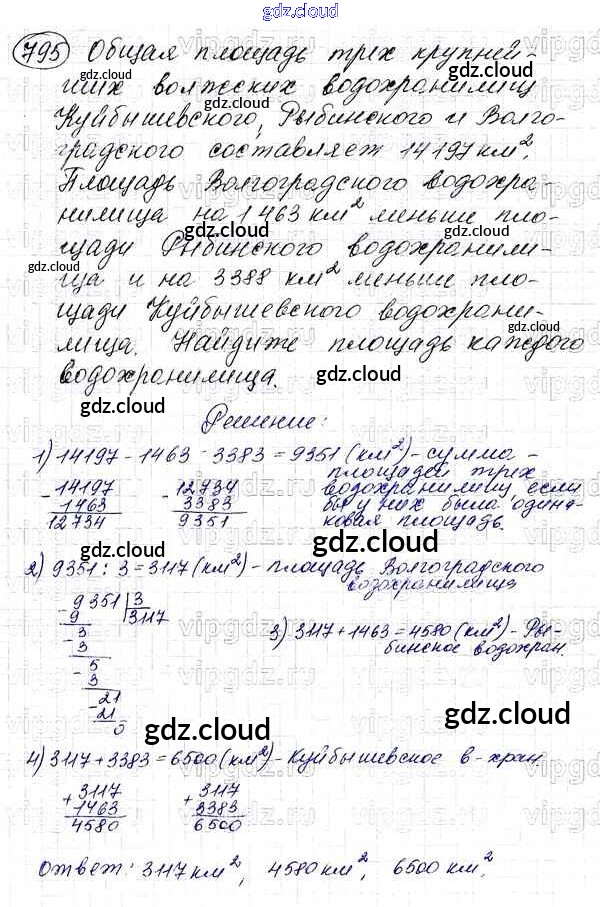 gdz.cloud
795 Общая площадь трех крупней-
ших волжских водохранилищ
Куйбышевского, Рыбинского и Волго-
градского составляет 14197 км².
Площадь Волгоградского водохра-
нилища на 1463 км² меньше пло-
щади Рыбинского водохранили-
ща и на 3388 км² меньше пло-
щади Куйбышевского водохрани-
лища. Найдите площадь каждого
водохранилища.
Решение:
1) 14197 - 1463 - 3383 = 9351 (км²) - сумма
площадей трех
водохранилищ, если
бы у них была одина-
ковая площадь.
- 14197
1463
12734
- 12734
3383
9351
2) 9351 : 3 = 3117 (км²) - площадь Волгоградского
водохранилища
- 9351 | 3
9 3117
3
- 3
5
- 3
21
- 21
0
3) 3117 + 1463 = 4580 (км²) - Ры-
бинское водохран.
4) 3117 + 3383 = 6500 (км²) - Куйбышевское в-хран.
+ 3117
1463
4580
+ 3117
3383
6500
Ответ: 3117 км², 4580 км², 6500 км².